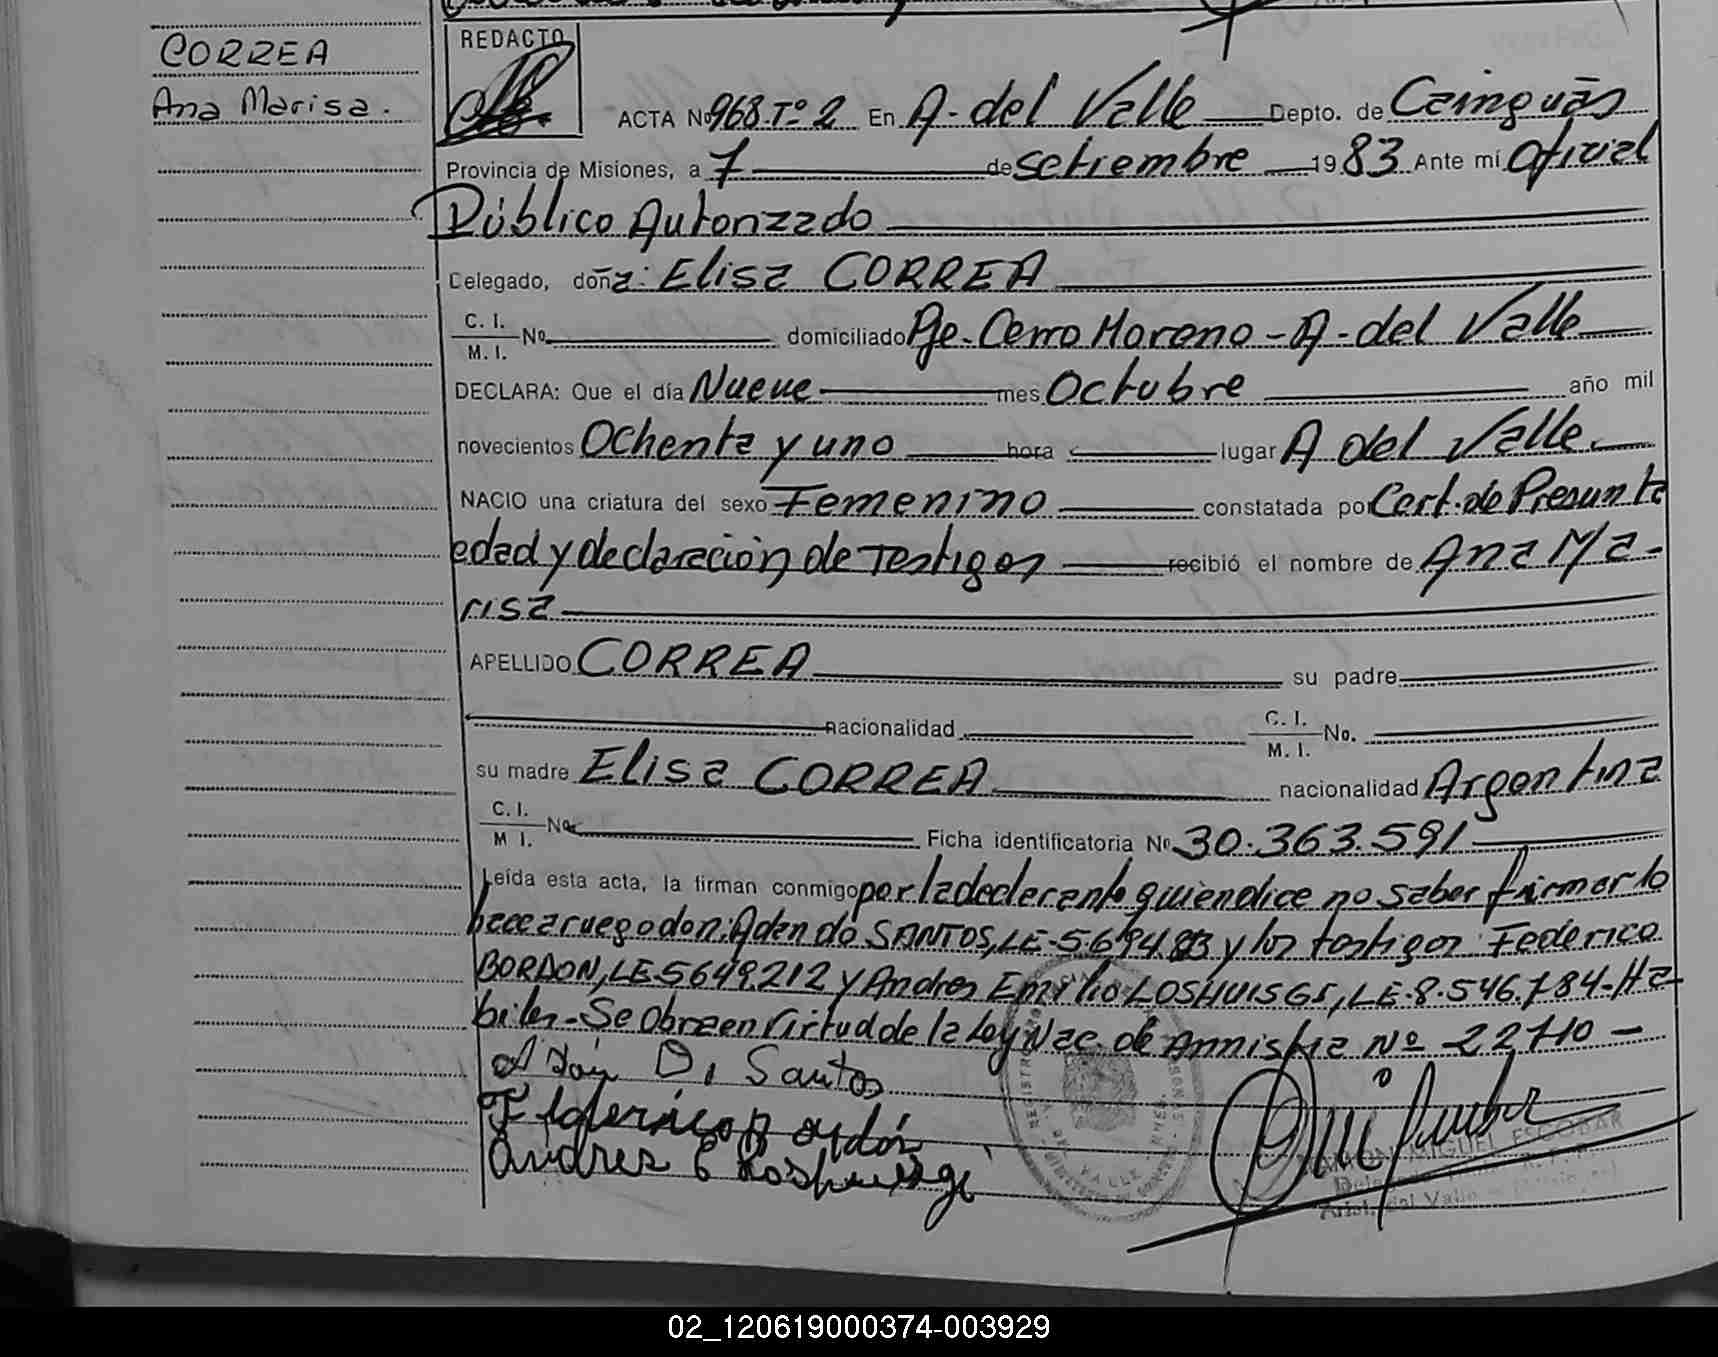 CORREA
Ana Marisa.
REDACTO
ACTA Nº 968-Tº 2 En A. del Valle Depto. de Cainguás
Provincia de Misiones, a 7 de setiembre 1983 Ante mí Oficial
Público Autorizado
Delegado, doña: Elisa CORREA
C. I.
M. I. No. domiciliado Pje. Cerro Moreno - A. del Valle
DECLARA: Que el día Nueve mes Octubre año mil
novecientos Ochenta y uno hora lugar A del Valle.
NACIO una criatura del sexo Femenino constatada por Cert. de Presunta
edad y declaración de Testigos recibió el nombre de Ana Ma-
risa
APELLIDO CORREA su padre
nacionalidad C. I.
M. I. No.
su madre Elisa CORREA nacionalidad Argentina
C. I.
M I. No. Ficha identificatoria Nº 30.363.591
Leída esta acta, la firman conmigo por la declarante quien dice no saber firmar lo
hace a ruego don: SANTOS, LE- y los testigos: Federico
BORDON, LE 5649.212 y Andres Emilio LOSHUISGS, LE-8.546.784-Ha-
biles- Se Obra en Virtud de la Ley Nac. de Amnistia Nº 22710 -
D, Santos
Federico Bordón
Andres E
MIGUEL ESCOBAR
del Valle
02_120619000374-003929